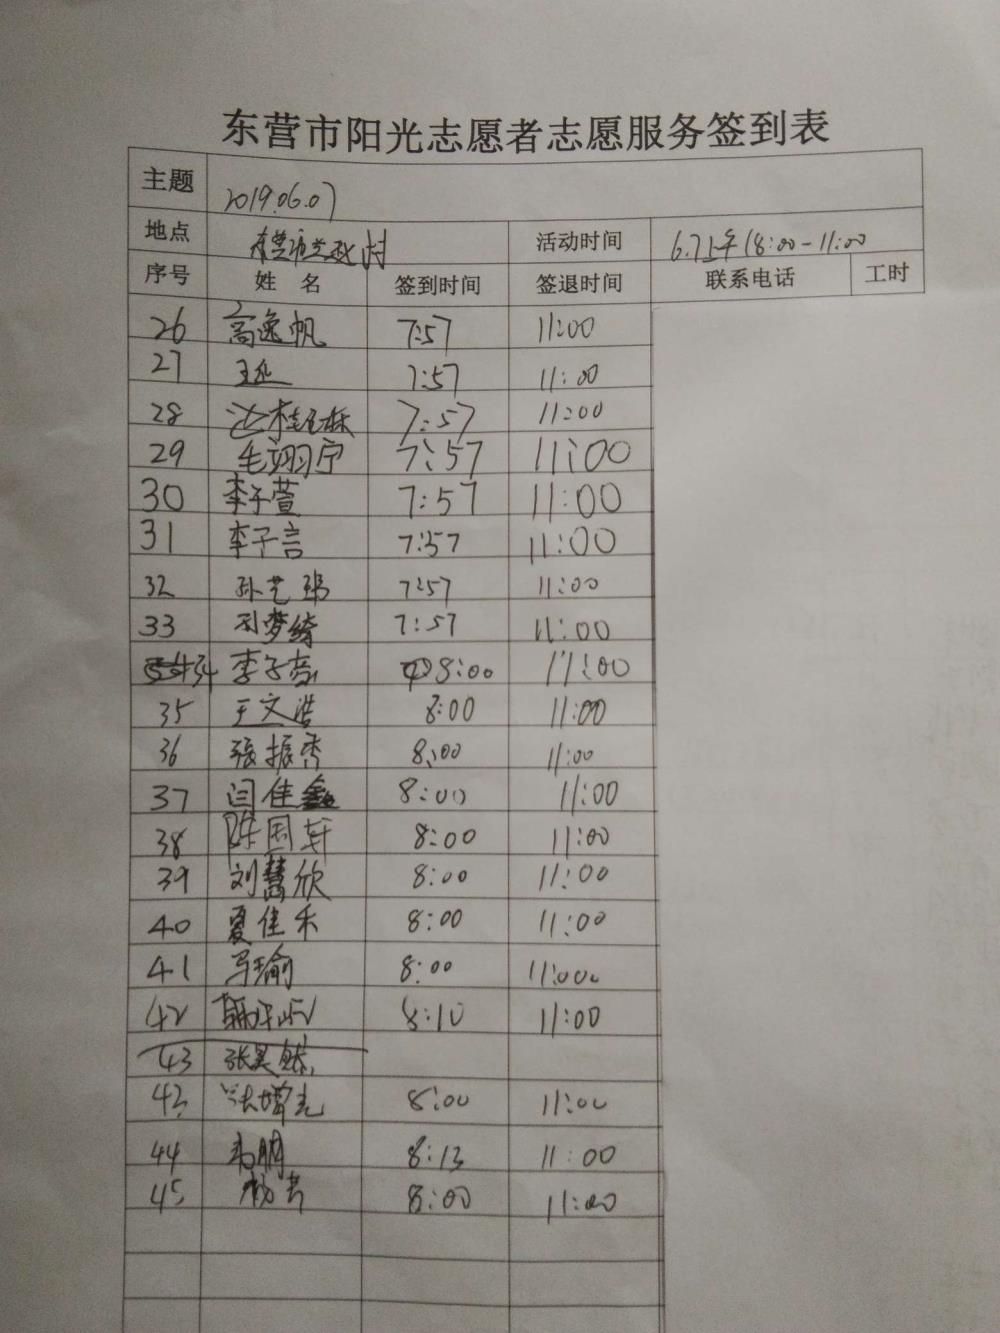 东营市阳光志愿者志愿服务签到表
主题 2019.06.07
地点 活动时间 6.7上午(8:00-11:00
序号 姓 名 签到时间 签退时间 联系电话 工时
26 高逸帆 7:57 11:00
27 7:57 11:00
28 7:57 11:00
29 毛翊宁 7:57 11:00
30 李子萱 7:57 11:00
31 李子言 7:57 11:00
32 孙艺 7:57 11:00
33 刘梦绮 7:57 11:00
34 李子 8:00 11:00
35 王文浩 8:00 11:00
36 张振秀 8:00 11:00
37 闫佳鑫 8:00 11:00
38 陈国轩 8:00 11:00
39 刘慧欣 8:00 11:00
40 夏佳禾 8:00 11:00
41 马瑜 8:00 11:00
42 8:10 11:00
43 张昊然
43 8:00 11:00
44 8:13 11:00
45 8:00 11:00